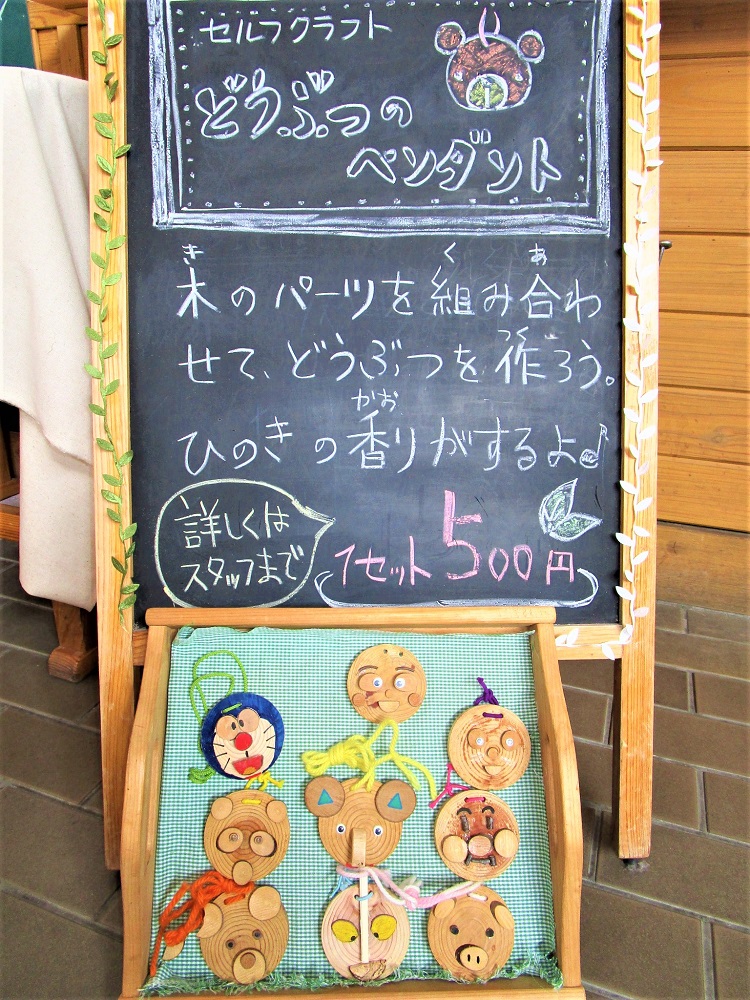 セルフクラフト
どうぶつの
ペンダント
き く あ
木のパーツを組み合わ
つく
せて、どうぶつを作ろう。
かお
ひのきの香りがするよ♪
詳しくは
スタッフまで
1セット500円